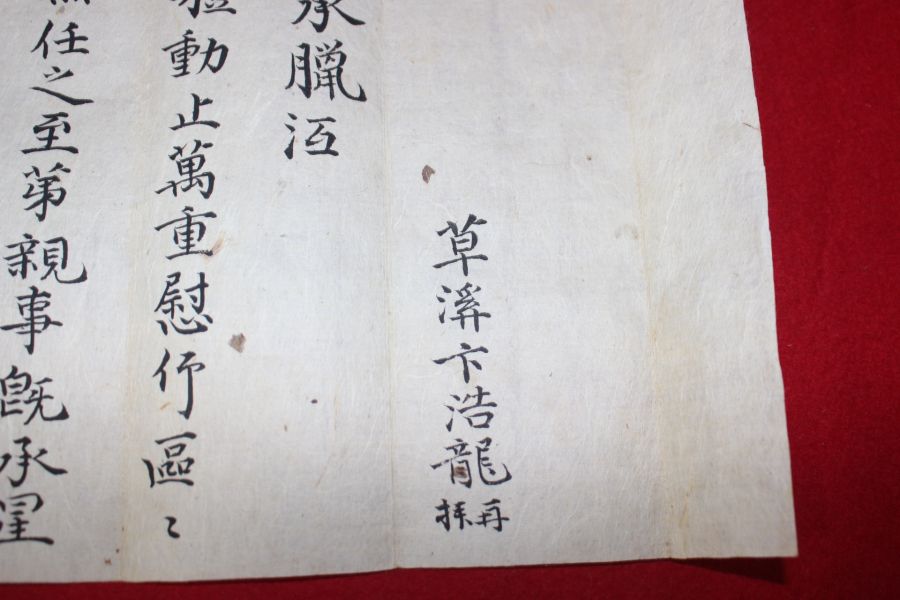 草溪卞浩龍再拜
承臘沍
動止萬重慰仰區〻
任之至第親事旣承星